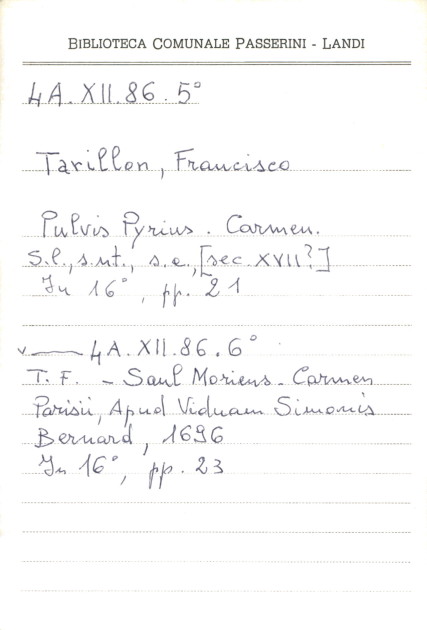 BIBLIOTECA COMUNALE PASSERINI - LANDI
4A.XII.86.5°
Tarillon, Francisco
Pulvis Pyrius. Carmen.
S.l., s.nt., s.a., [sec. XVII?]
In 16°, pp. 21
v 4A.XII.86.6°
T. F. - Saul Moriens. Carmen
Parisii, Apud Viduam Simonis
Bernard, 1696
In 16°, pp. 23